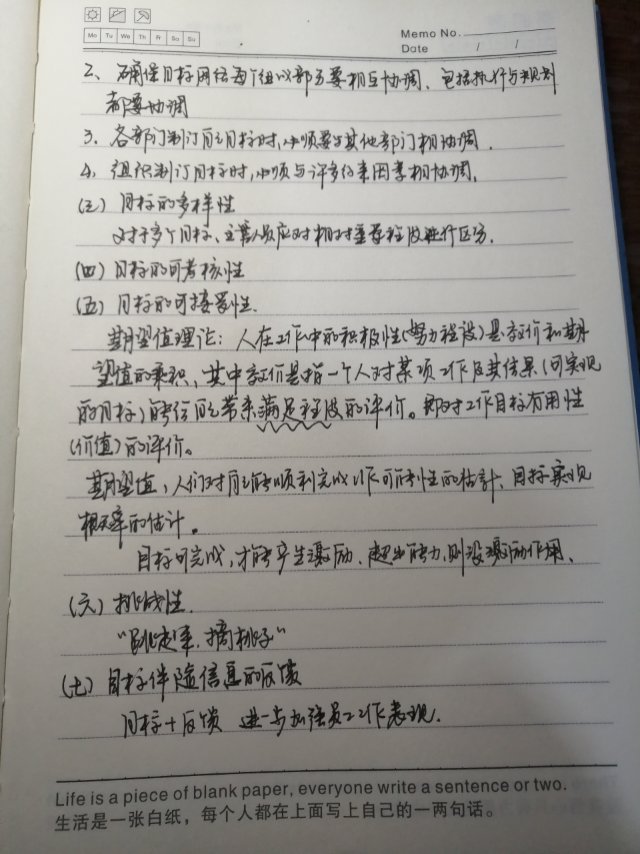 Memo No.
Mo Tu We Th Fr Sa Su
Date / /
2、确保目标网络每个组成部分要相互协调、包括执行与规划
都要协调
3、各部门制订自己目标时,必须要与其他部门相协调.
4、组织制订目标时,必须与许多约束因素相协调.
(三)目标的多样性
对于多个目标、主管人员应对相对重要程度进行区分.
(四)目标的可考核性
(五)目标的可接受性.
期望值理论:人在工作中的积极性(努力程度)是效价和期
望值的乘积,其中效价是指一个人对某项工作及其结果(可实现
的目标)能给自己带来满足程度的评价。即对工作目标有用性
(价值)的评价。
期望值,人们对自己能顺利完成工作可能性的估计、目标实现
概率的估计。
目标可完成,才能产生激励、超出能力,则没激励作用、
(六)挑战性.
“跳起来,摘桃子”
(七)目标伴随信息的反馈
目标+反馈 进一步加强员工工作表现.
Life is a piece of blank paper, everyone write a sentence or two.
生活是一张白纸,每个人都在上面写上自己的一两句话。